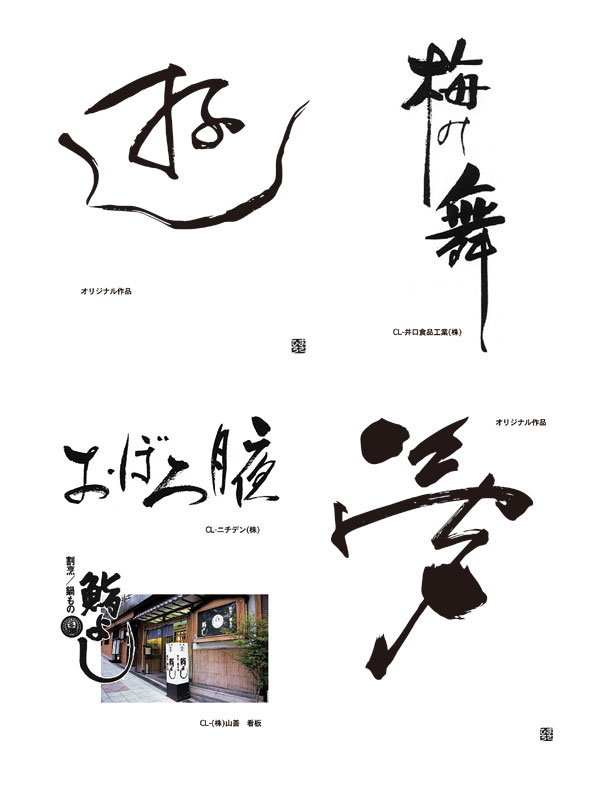 遊
オリジナル作品
梅の舞
CL-井口食品工業(株)
おぼろ月夜
CL-ニチデン(株)
割烹/鍋もの
鮨よし
CL-(株)山善 看板
夢
オリジナル作品